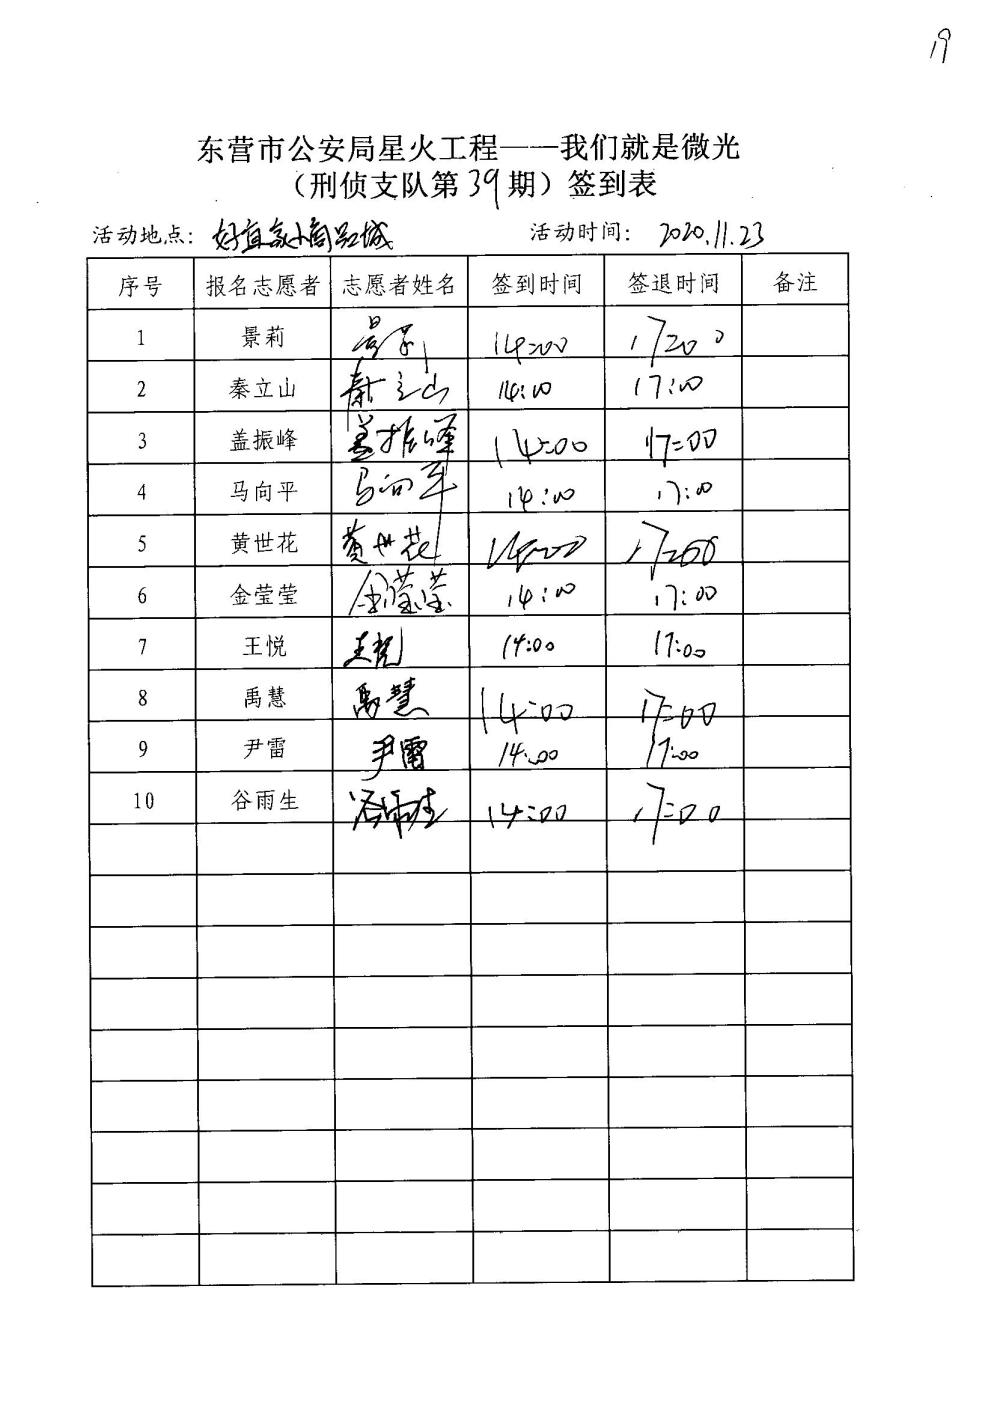 19
东营市公安局星火工程——我们就是微光
（刑侦支队第39期）签到表
活动地点：好宜家小商品城 活动时间：2020.11.23
序号 报名志愿者 志愿者姓名 签到时间 签退时间 备注
1 景莉 景莉 14:00 17:00
2 秦立山 秦立山 14:00 17:00
3 盖振峰 盖振峰 14:00 17:00
4 马向平 马向平 14:00 17:00
5 黄世花 黄世花 14:00 17:00
6 金莹莹 金莹莹 14:00 17:00
7 王悦 王悦 14:00 17:00
8 禹慧 禹慧 14:00 17:00
9 尹雷 尹雷 14:00 17:00
10 谷雨生 谷雨生 14:00 17:00